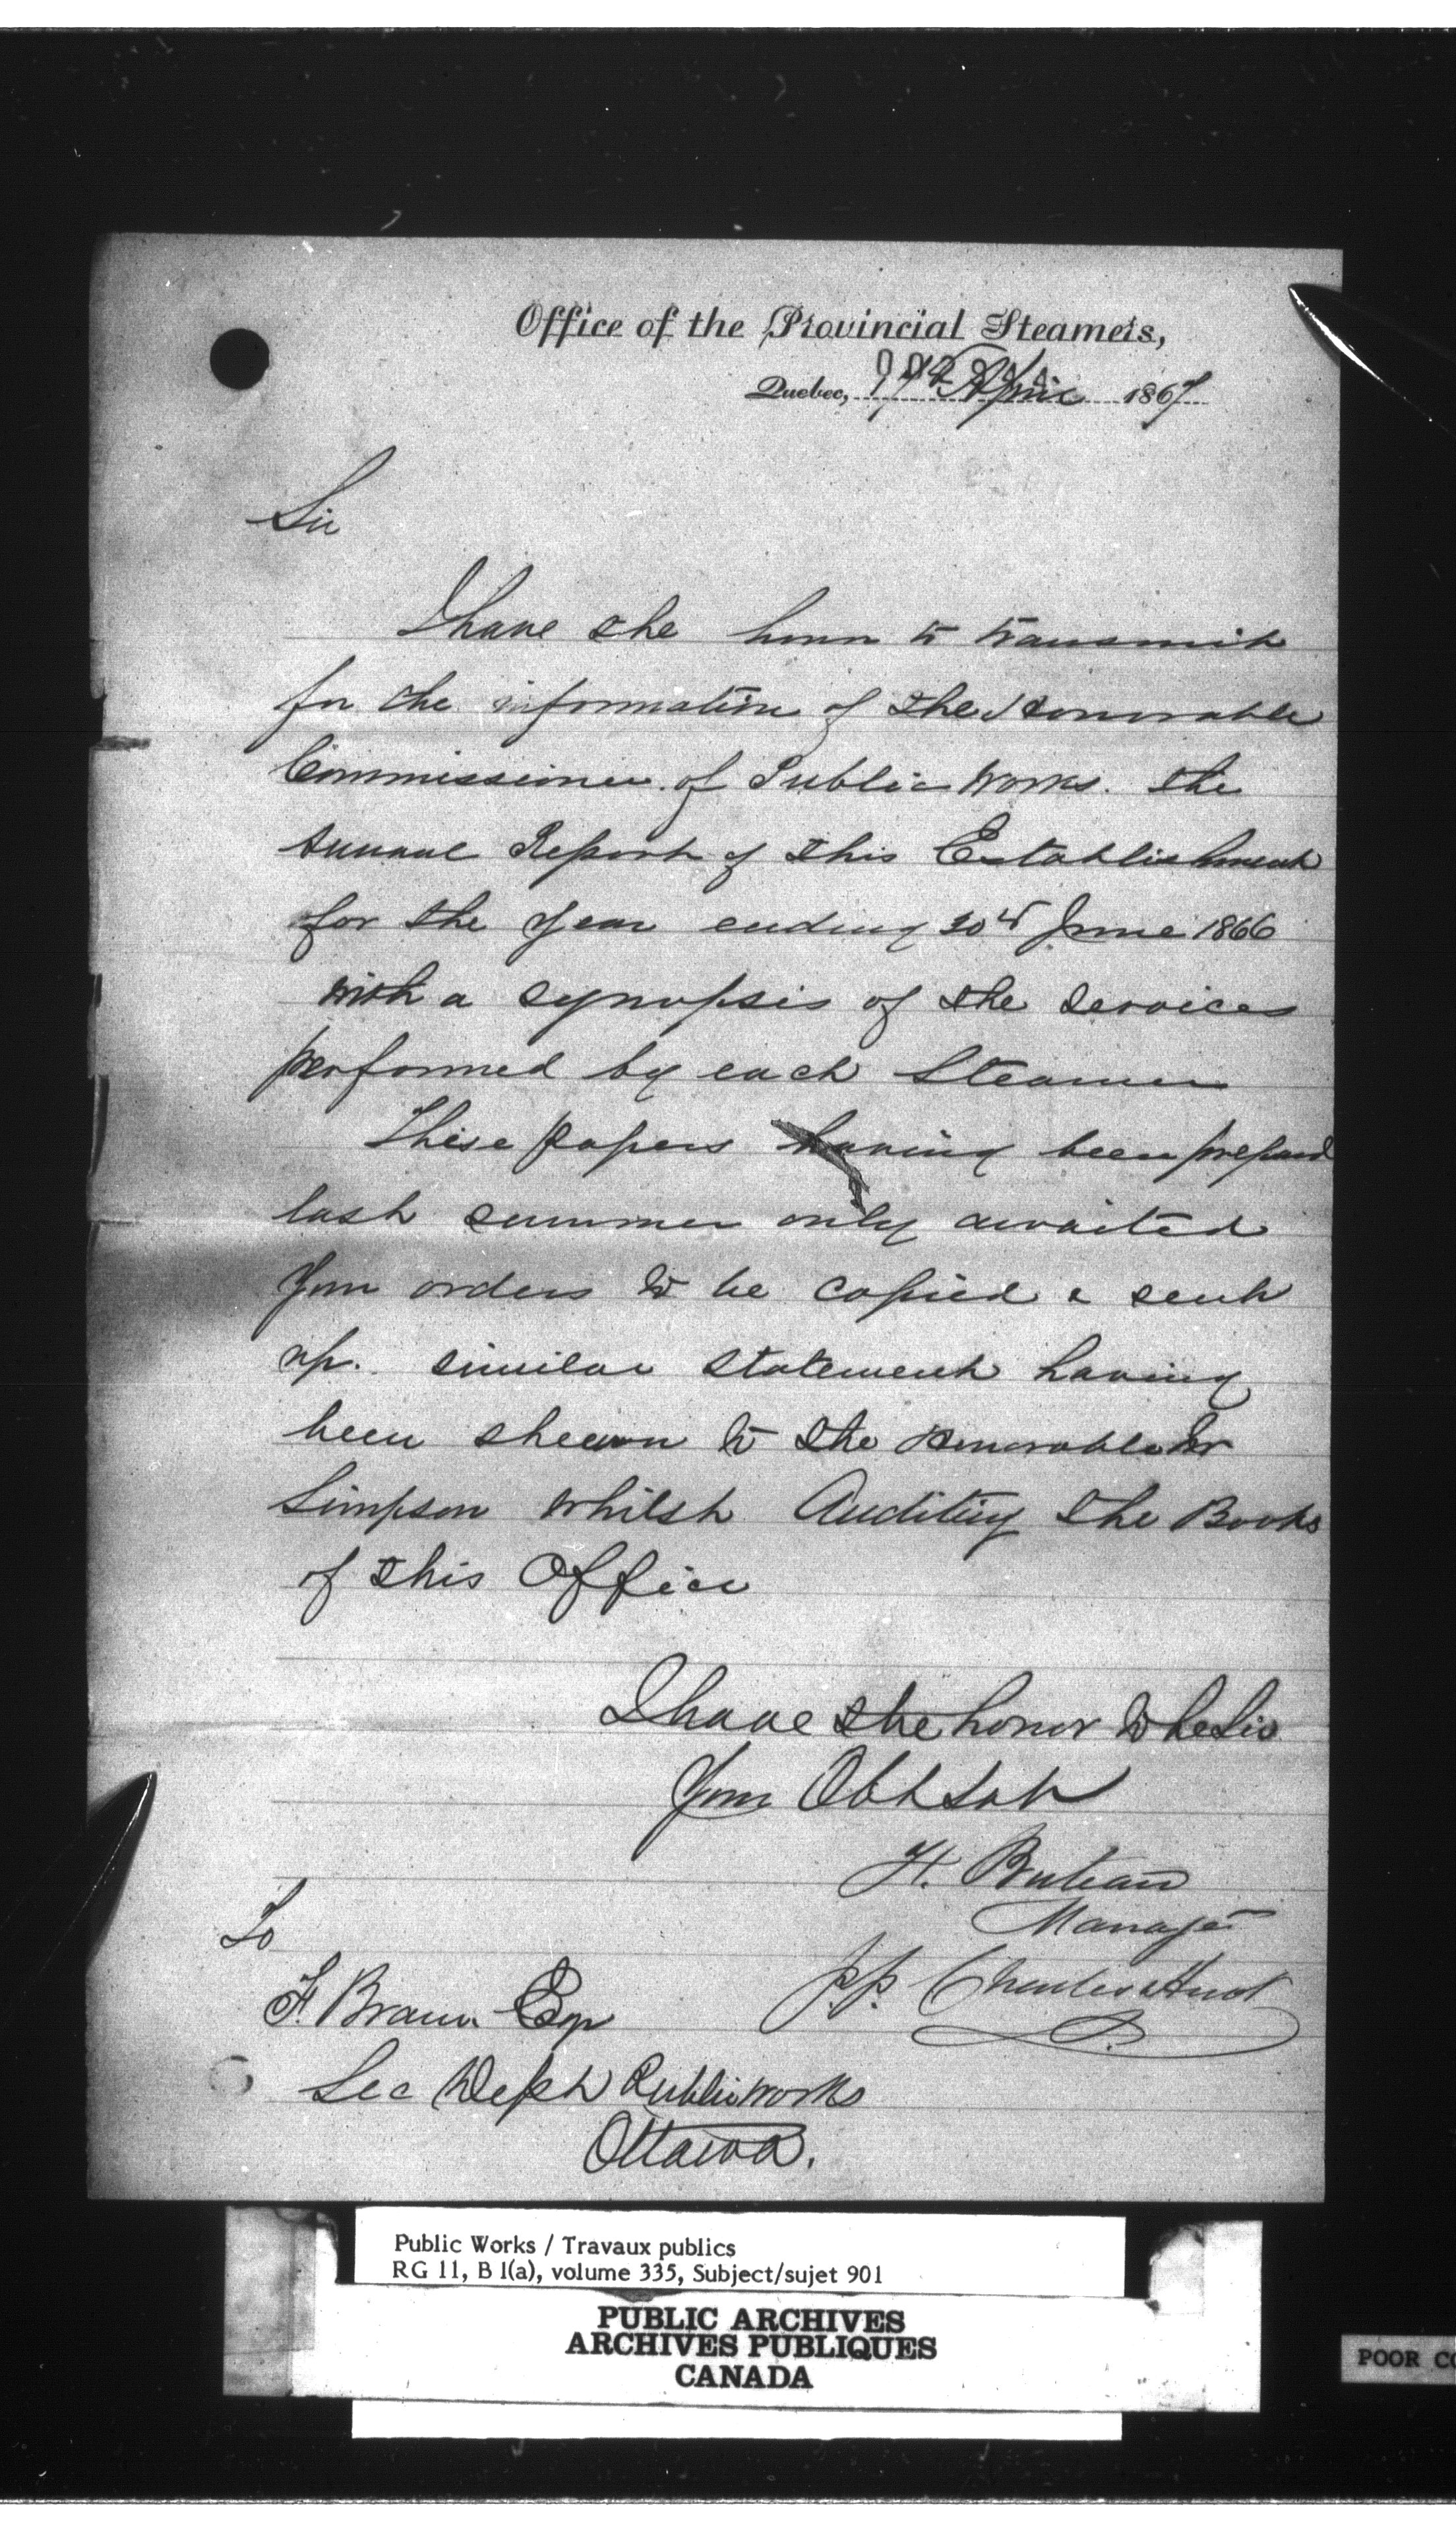 Office of the Provincial Steamers,
Quebec, April 1867
Sir
I have the honor to transmit
for the information of the Honorable
Commissioner of Public Works. the
Annual Report of this Establishment
for the Year ending 30th June 1866
with a synopsis of the services
performed by each Steamer
These papers having been prepared
last summer only awaited
your orders to be copied & sent
up. similar statement having
been shewn to the Honorable Mr
Simpson whilst Auditing the Books
of this Office
I have the honor to be Sir
Your Obt Sevt
H. Buteau
Manager
To
p.p. Charles Huot
F. Braun Esqr
Sec Dept Public Works
Ottawa.
Public Works / Travaux publics
RG 11, B 1(a), volume 335, Subject/sujet 901
PUBLIC ARCHIVES
ARCHIVES PUBLIQUES
CANADA
POOR CO